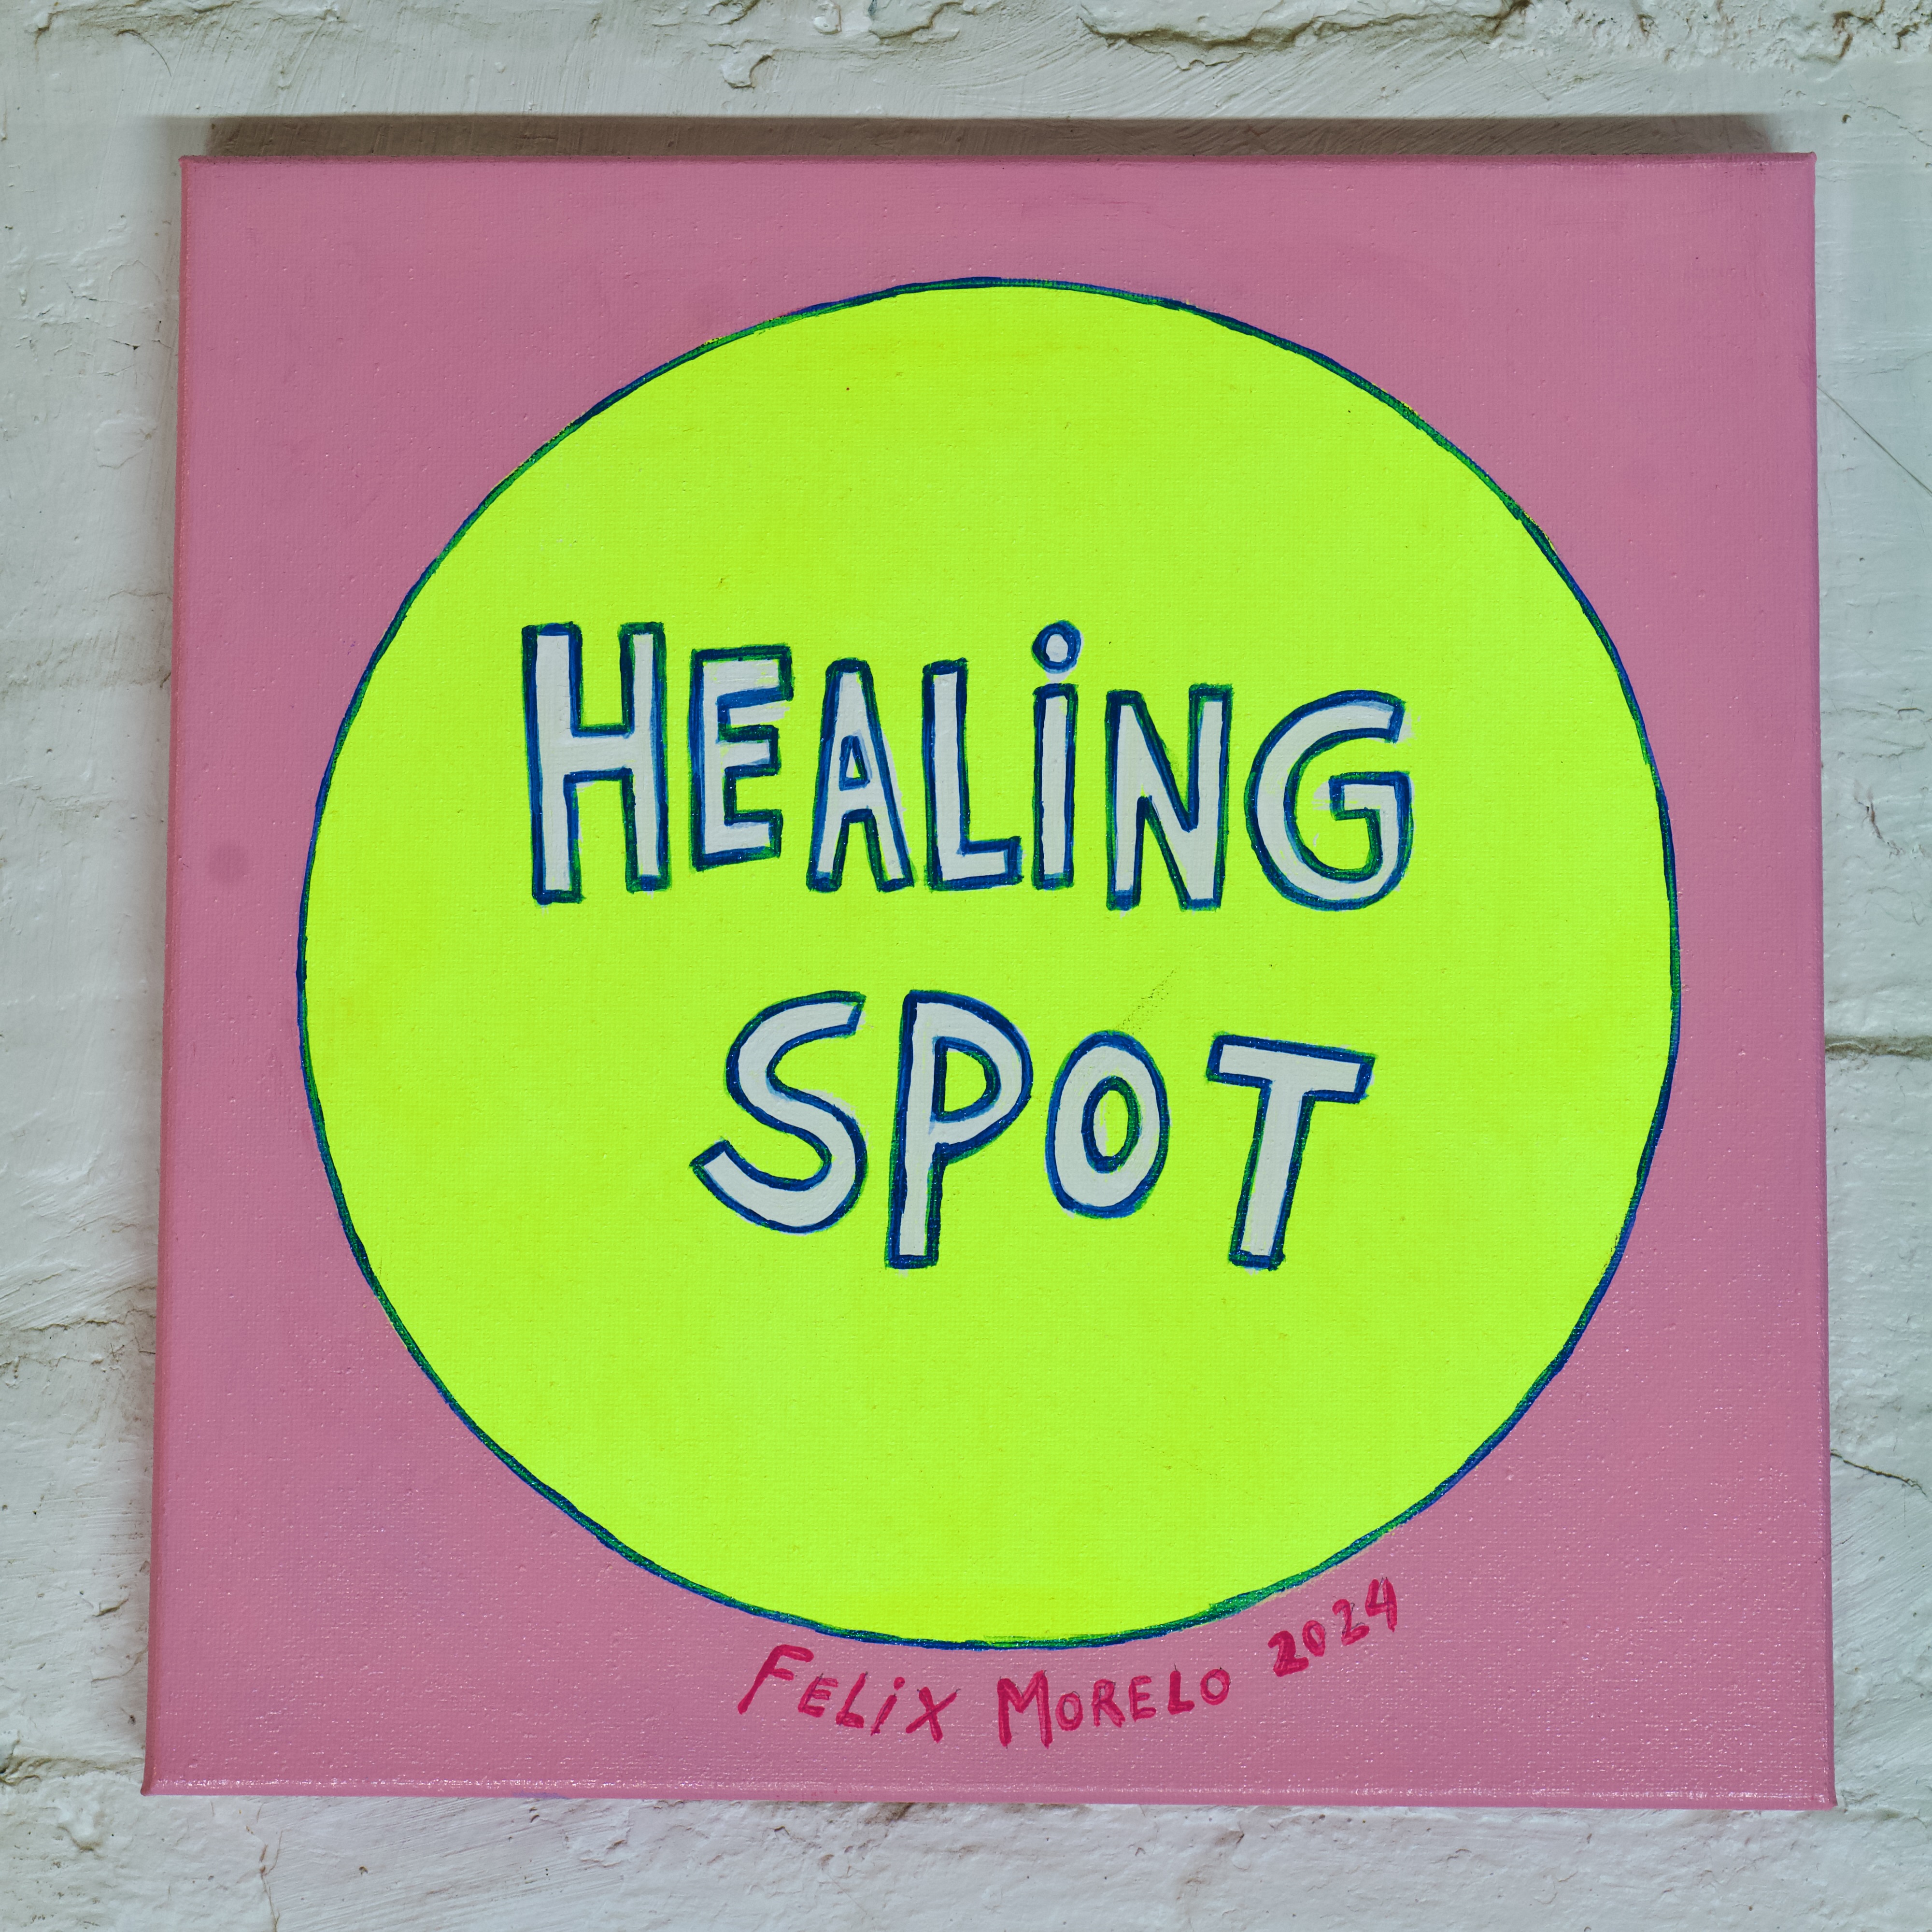 HEALiNG
SPOT
FELiX MORELO 2024